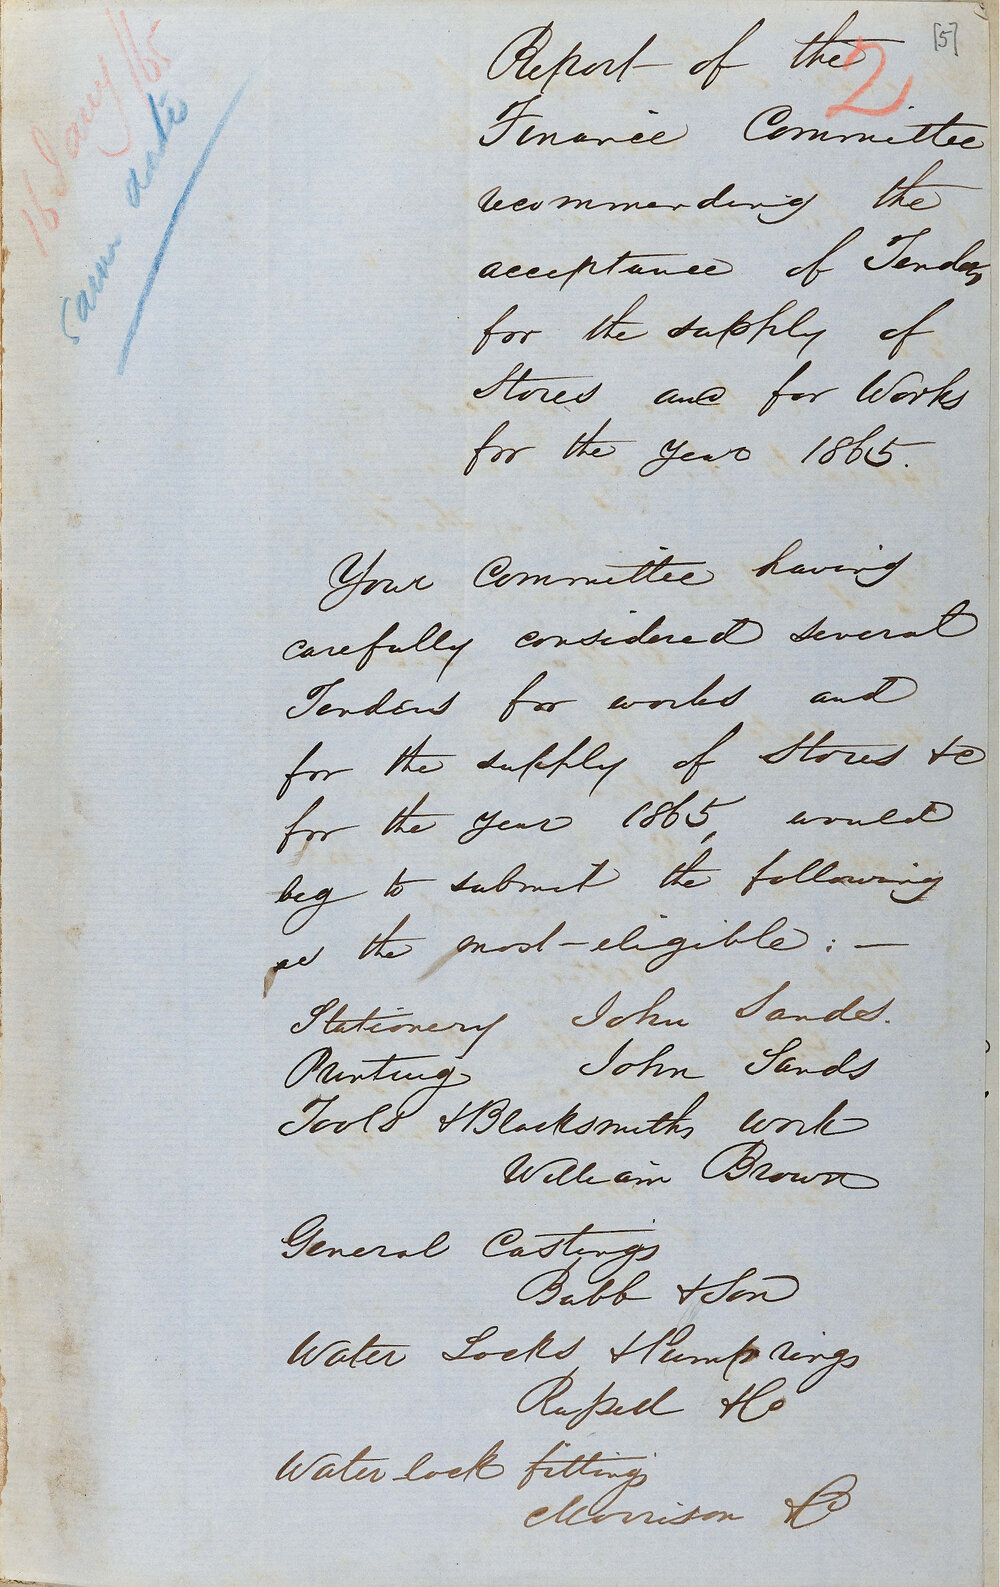 [5]
2
16 Jany/65
same date
Report of the
Finance Committee
recommending the
acceptance of Tenders
for the supply of
Stores and for Works
for the Year 1865.
Your Committee having
carefully considered several
Tenders for works and
for the supply of Stores &c
for the year 1865, would
beg to submit the following
as the most eligible : —
Stationery John Sands.
Printing John Sands
Tools & Blacksmiths work
William Brown
General Castings
Bubb & Son
Water Locks & Pump rings
Russell & Co
Water lock fittings
Morrison & Co